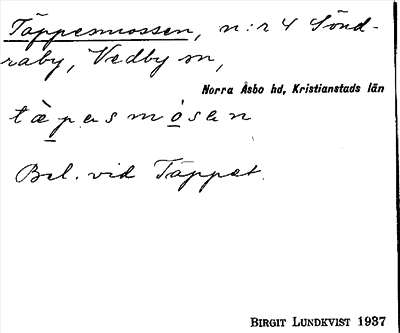 Täppesmossen, n:r 4 Sönd-
raby, Vedby sn,
Norra Åsbo hd, Kristianstads län
tæ̀pasmósen
Bel. vid Täppet.
BIRGIT LUNDKVIST 1937